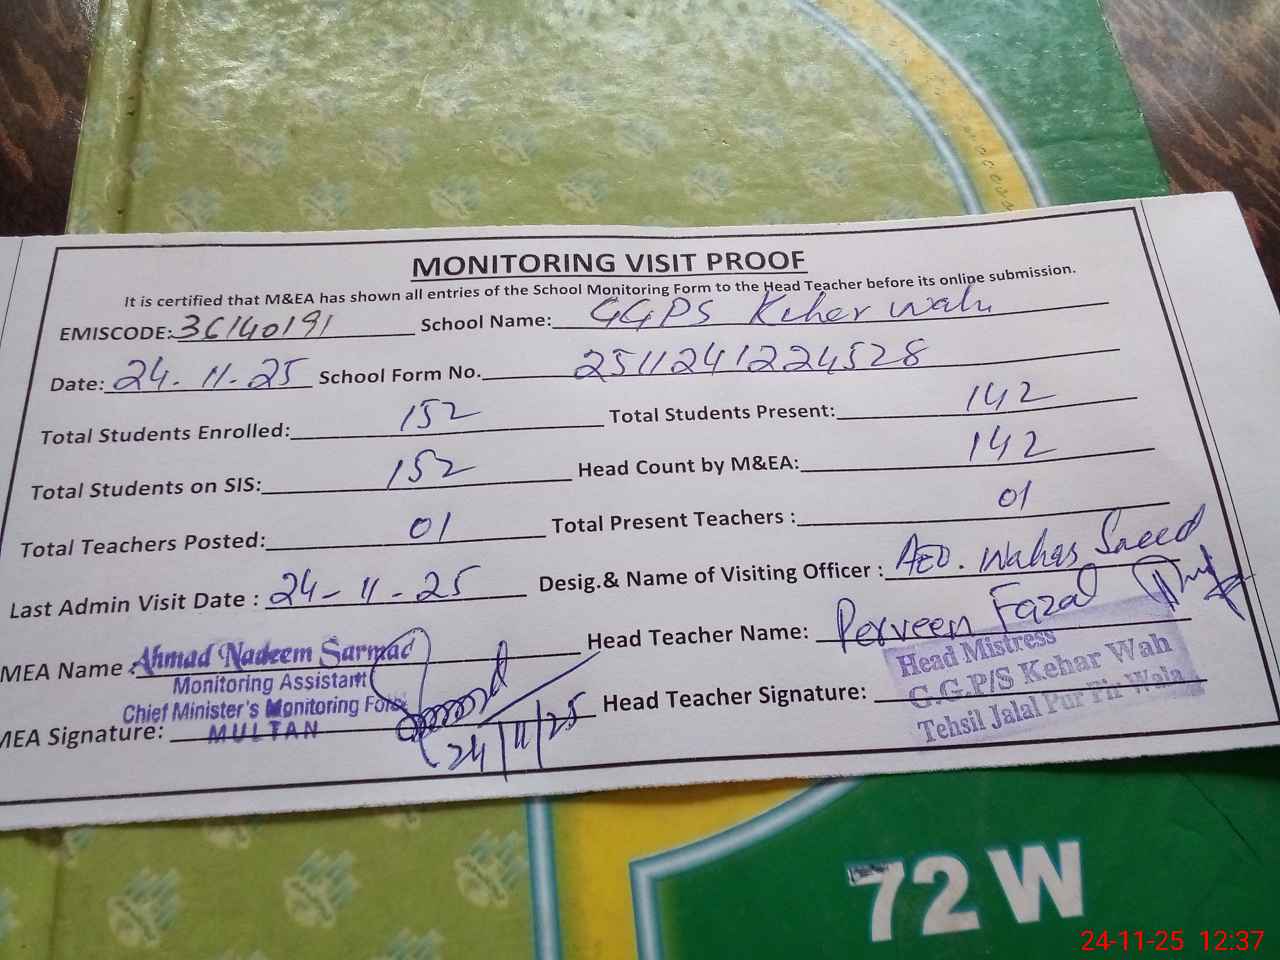 MONITORING VISIT PROOF
It is certified that M&EA has shown all entries of the School Monitoring Form to the Head Teacher before its online submission.
EMISCODE: 36140191 School Name: GGPS Keher wah
Date: 24-11-25 School Form No. 2511241224528
Total Students Enrolled: 152 Total Students Present: 142
Total Students on SIS: 152 Head Count by M&EA: 142
Total Teachers Posted: 01 Total Present Teachers : 01
Last Admin Visit Date : 24-11-25 Desig.& Name of Visiting Officer : AEO. Wahas Saeed
MEA Name : Ahmad Nadeem Sarmad Head Teacher Name: Perveen Fazal
Monitoring Assistant
Chief Minister's Monitoring Force
MULTAN
MEA Signature: 24/11/25 Head Teacher Signature:
Head Mistress
G.G.P/S Kehar Wah
Tehsil Jalal Pur Pir Wala
72 W
24-11-25 12:37